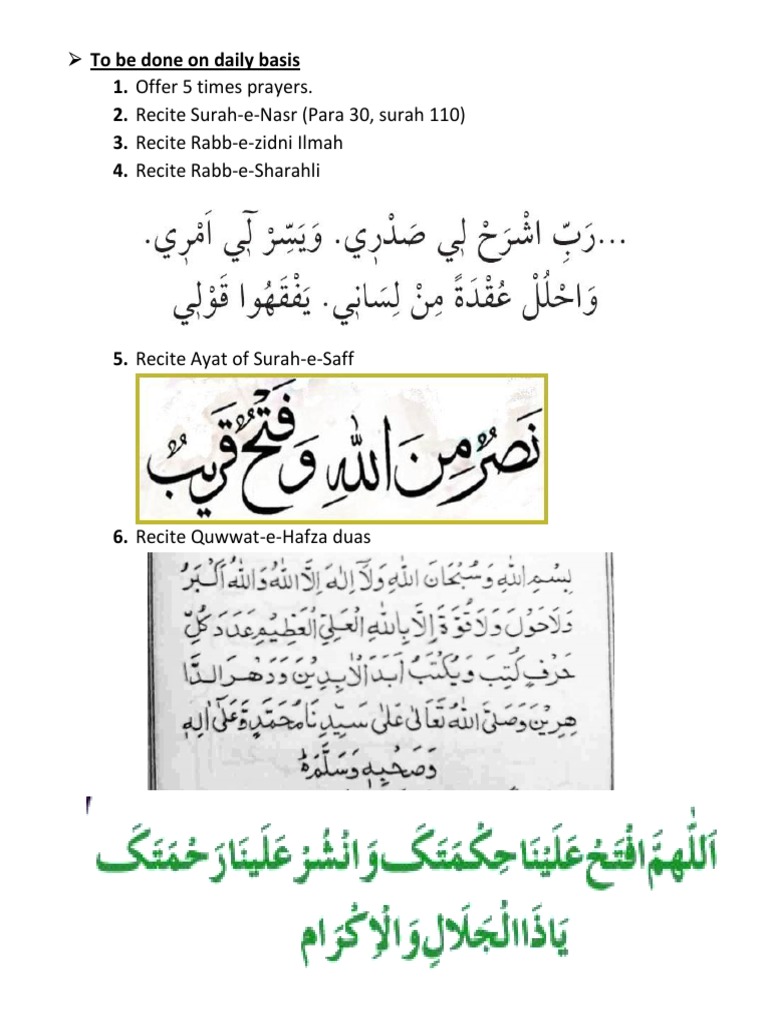 ➢ To be done on daily basis
1. Offer 5 times prayers.
2. Recite Surah-e-Nasr (Para 30, surah 110)
3. Recite Rabb-e-zidni Ilmah
4. Recite Rabb-e-Sharahli
...رَبِّ اشْرَحْ لِي صَدْرِي. وَيَسِّرْ لِٓي اَمْرِي.
وَاحْلُلْ عُقْدَةً مِنْ لِسَانِي. يَفْقَهُوا قَوْلِي
5. Recite Ayat of Surah-e-Saff
نَصْرٌ مِنَ اللهِ وَفَتْحٌ قَرِيبٌ
6. Recite Quwwat-e-Hafza duas
بِسْمِ اللهِ وَسُبْحَانَ اللهِ وَلَآ اِلٰهَ اِلَّا اللهُ وَاللهُ اَكْبَرُ
وَلَاحَوْلَ وَلَاقُوَّةَ اِلَّا بِاللهِ الْعَلِيِّ الْعَظِيْمِ عَدَدَ كُلِّ
حَرْفٍ كُتِبَ وَيُكْتَبُ اَبَدَ الْاٰبِدِيْنَ وَدَهْرَ الدَّا
هِرِيْنَ وَصَلَّى اللهُ تَعَالٰى عَلٰى سَيِّدِنَا مُحَمَّدٍ وَّعَلٰٓى اٰلِهٖ
وَصَحْبِهٖ وَسَلَّمَ ط
اَللّٰهُمَّ افْتَحْ عَلَيْنَا حِكْمَتَكَ وَانْشُرْ عَلَيْنَا رَحْمَتَكَ
يَاذَا الْجَلَالِ وَالْاِكْرَام